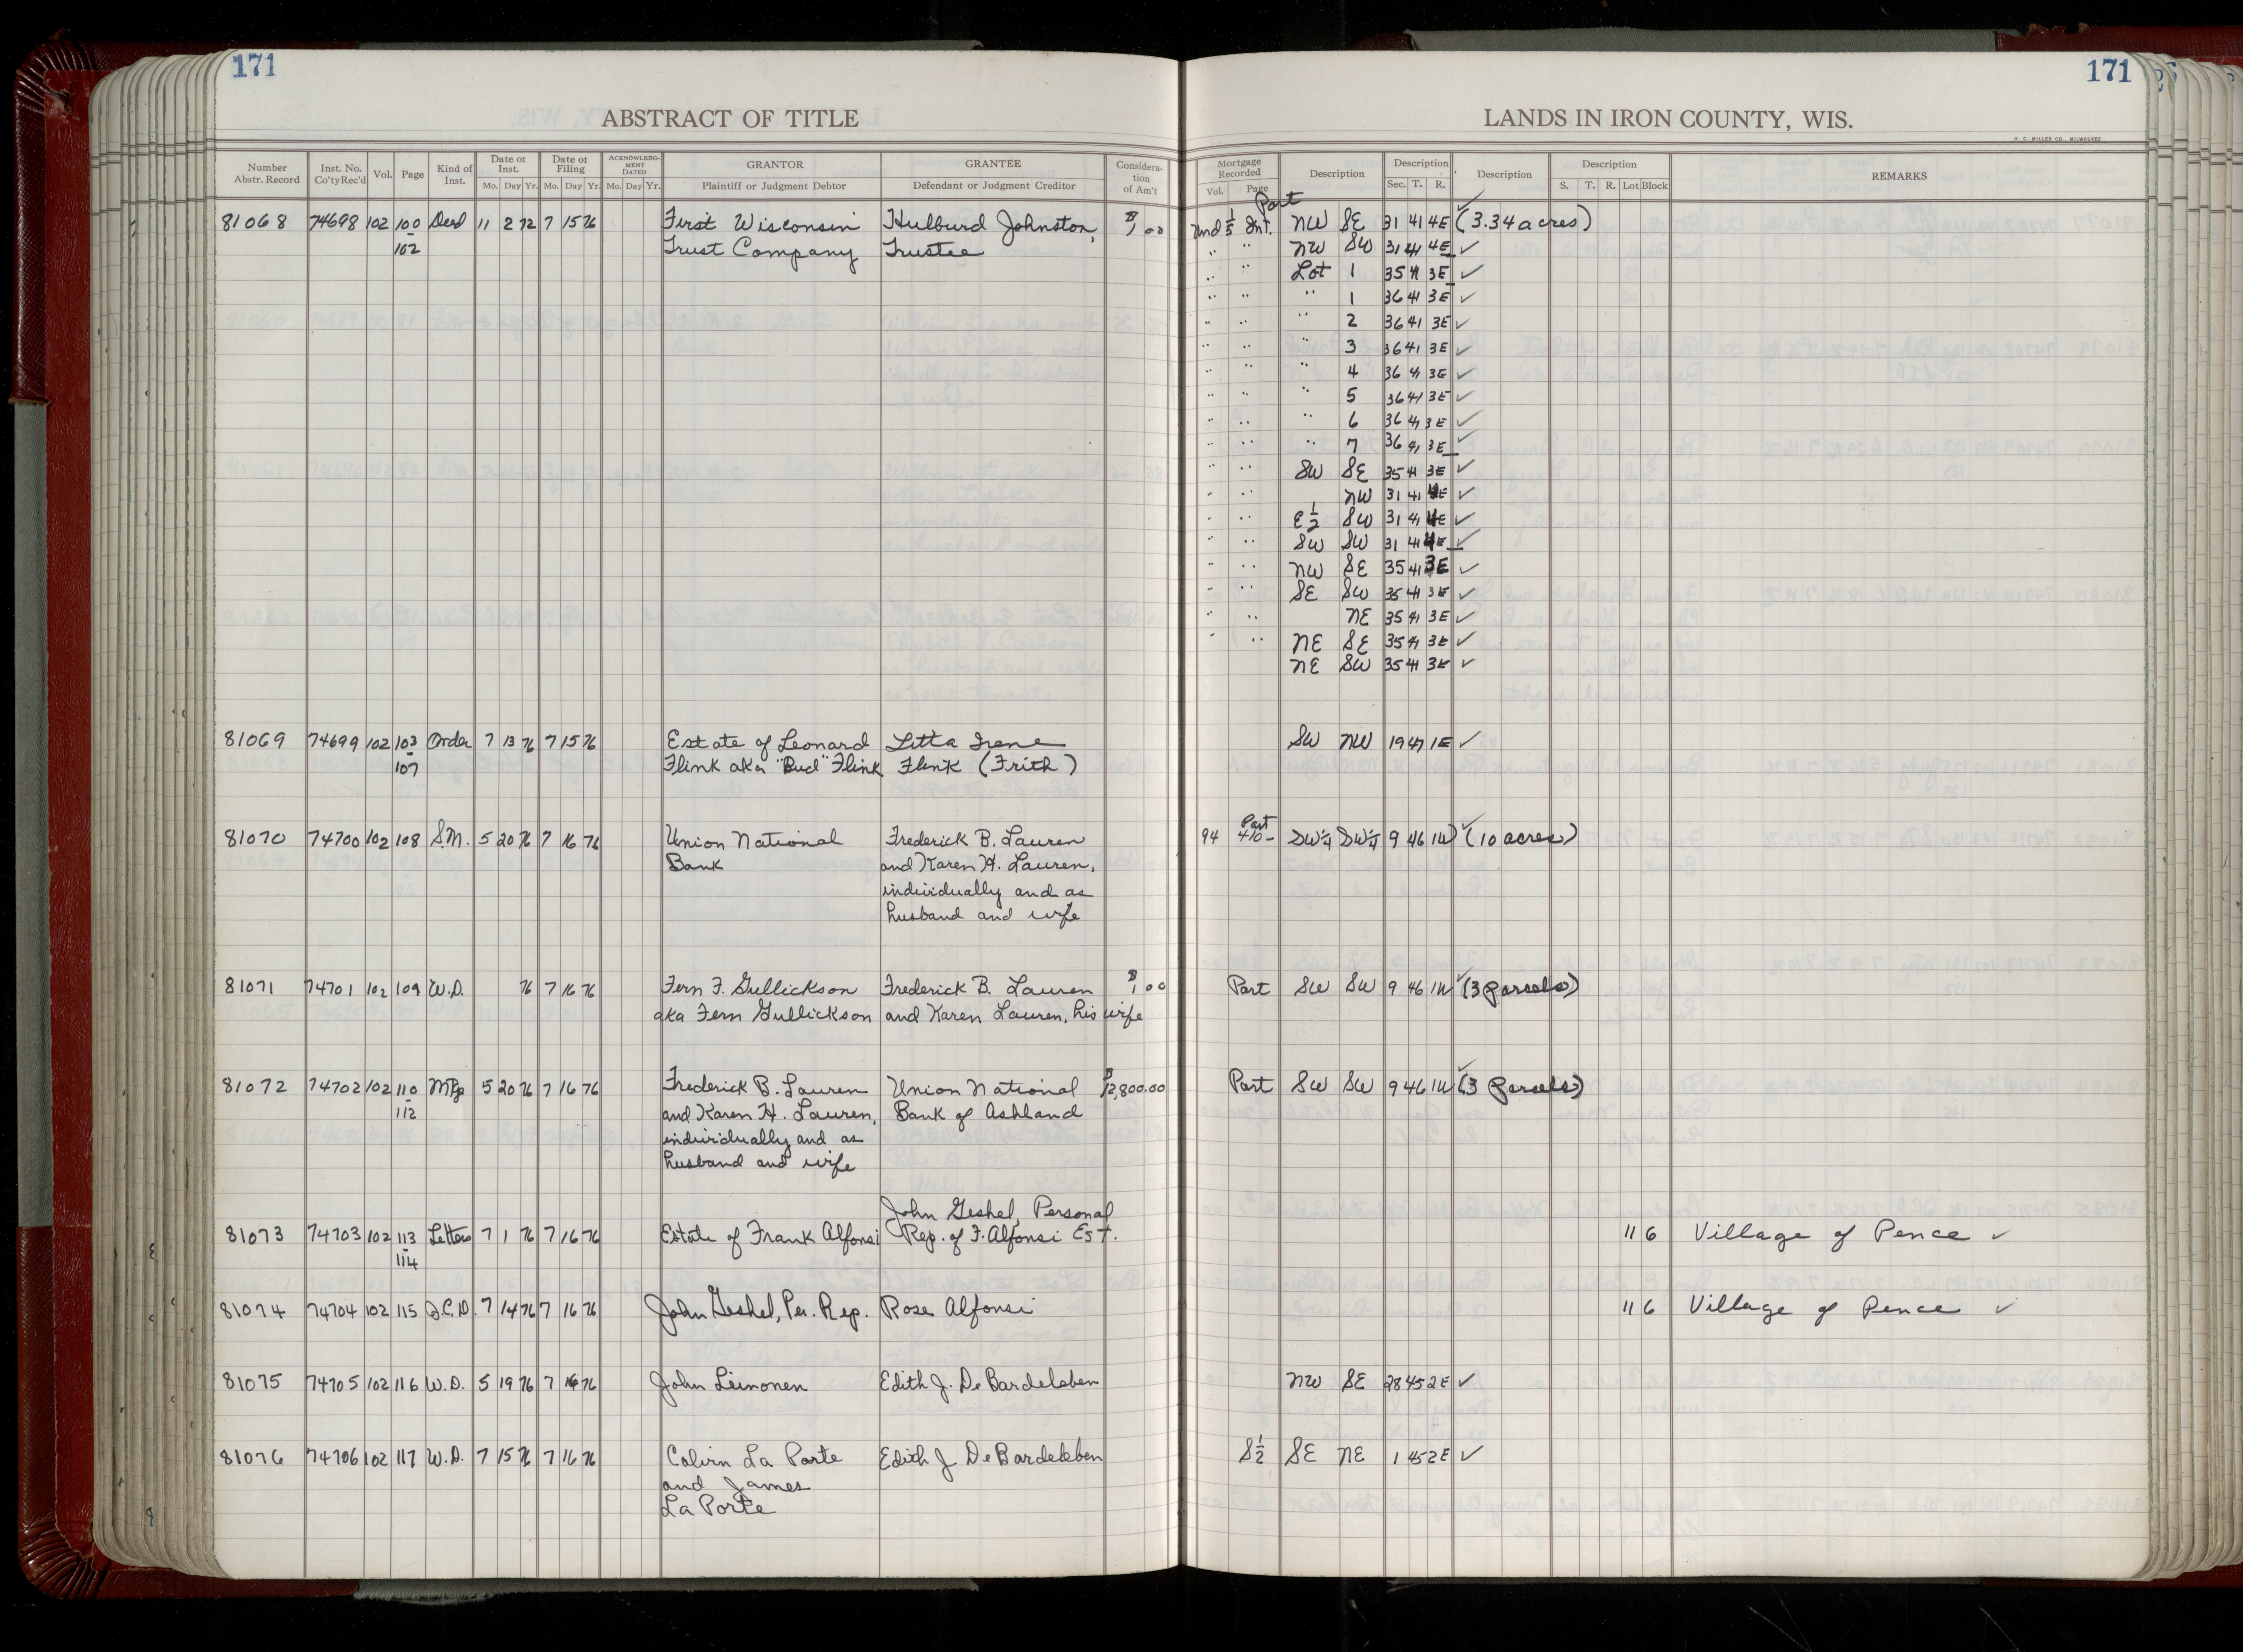 171
171
ABSTRACT OF TITLE
LANDS IN IRON COUNTY, WIS.
H. C. MILLER CO., MILWAUKEE
Number Abstr. Record | Inst. No. Co'ty Rec'd | Vol. | Page | Kind of Inst. | Date of Inst. Mo. Day Yr. | Date of Filing Mo. Day Yr. | ACKNOWLEDGMENT DATED Mo. Day Yr. | GRANTOR Plaintiff or Judgment Debtor | GRANTEE Defendant or Judgment Creditor | Consideration of Am't | Mortgage Recorded Vol. Page | Description | Description Sec. T. R. | Description | Description S. T. R. Lot Block | REMARKS
Part
81068 74698 102 100 Deed 11 2 72 7 15 76 First Wisconsin Hulburd Johnston, $1.00 Und 1/5 Int. NW SE 31 41 4E ✓ (3.34 acres)
- 102 Trust Company Trustee " " NW SW 31 41 4E ✓
" " Lot 1 35 41 3E ✓
" " " 1 36 41 3E ✓
" " " 2 36 41 3E ✓
" " " 3 36 41 3E ✓
" " " 4 36 41 3E ✓
" " " 5 36 41 3E ✓
" " " 6 36 41 3E ✓
" " " 7 36 41 3E ✓
" " SW SE 35 41 3E ✓
" " NW 31 41 4E ✓
" " E½ SW 31 41 4E ✓
" " SW SW 31 41 4E ✓
" " NW SE 35 41 3E ✓
" " SE SW 35 41 3E ✓
" " NE 35 41 3E ✓
" " NE SE 35 41 3E ✓
NE SW 35 41 3E ✓
81069 74699 102 103 Order 7 13 76 7 15 76 Estate of Leonard Litta Irene SW NW 19 47 1E ✓
- 107 Flink aka "Bud" Flink Flink (Frith)
Part
81070 74700 102 108 S.M. 5 20 76 7 16 76 Union National Frederick B. Lauren 94 410- SW¼ SW¼ 9 46 1W ✓ (10 acres)
Bank and Karen H. Lauren,
individually and as
husband and wife
81071 74701 102 109 W.D. 76 7 16 76 Fern F. Gullickson Frederick B. Lauren $1.00 Part SW SW 9 46 1W ✓ (3 parcels)
aka Fern Gullickson and Karen Lauren, his wife
81072 74702 102 110 Mtge 5 20 76 7 16 76 Frederick B. Lauren Union National $12,800.00 Part SW SW 9 46 1W ✓ (3 parcels)
- 112 and Karen H. Lauren, Bank of Ashland
individually and as
husband and wife
John Geshel, Personal
81073 74703 102 113 Letters 7 1 76 7 16 76 Estate of Frank Alfonsi Rep. of F. Alfonsi Est. 11 6 Village of Pence ✓
- 114
81074 74704 102 115 D.C.D. 7 14 76 7 16 76 John Geshel, Per. Rep. Rose Alfonsi 11 6 Village of Pence ✓
81075 74705 102 116 W.D. 5 19 76 7 16 76 John Leinonen Edith J. DeBardeleben NW SE 28 45 2E ✓
81076 74706 102 117 W.D. 7 15 76 7 16 76 Calvin La Porte Edith J DeBardeleben S½ SE NE 1 45 2E ✓
and James
La Porte